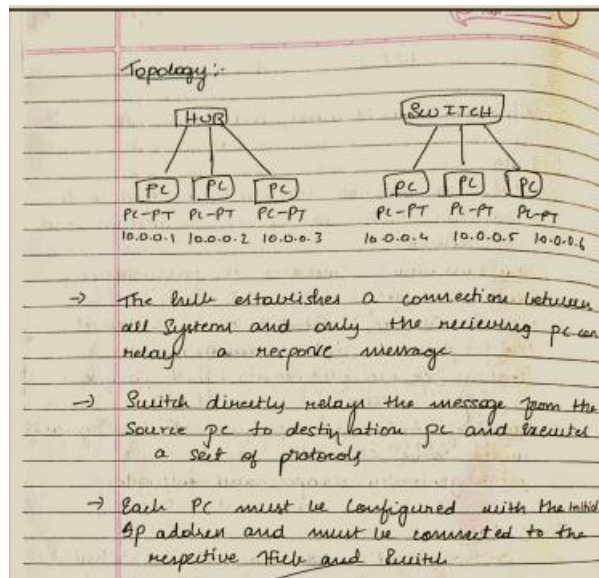 Topology:-
HUB SWITCH
PC PC PC PC PC PC
PC-PT PC-PT PC-PT PC-PT PC-PT PC-PT
10.0.0.1 10.0.0.2 10.0.0.3 10.0.0.4 10.0.0.5 10.0.0.6
→ The hub establishes a connection between
all Systems and only the recieving pc can
relay a response message
→ Switch directly relays the message from the
Source pc to destination pc and Executes
a set of protocols
→ Each PC must be Configured with the initial
IP address and must be connected to the
respective Hub and Switch